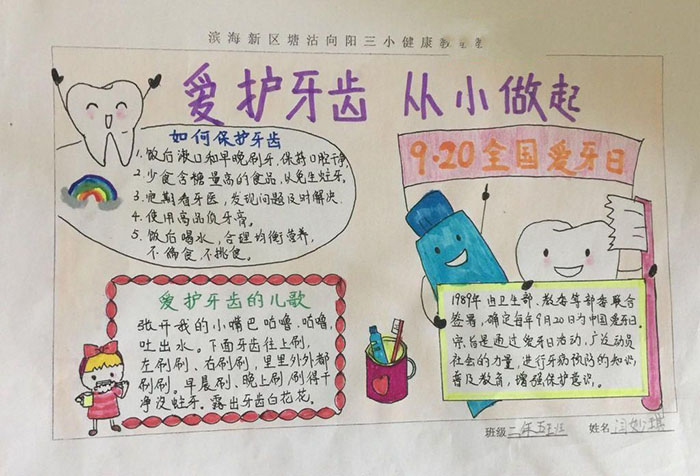 滨海新区塘沽向阳三小健康教
爱护牙齿 从小做起
如何保护牙齿
1.饭后漱口和早晚刷牙,保持口腔干净
2.少食含糖量高的食品,以免生蛀牙.
3.定期看牙医,发现问题及时解决.
4.使用高品质牙膏.
5.饭后喝水,合理均衡营养,
不偏食.不挑食.
9·20全国爱牙日
爱护牙齿的儿歌
张开我的小嘴巴咕噜.咕噜,
吐出水。下面牙齿往上刷,
左刷刷、右刷刷,里里外外都
刷刷。早晨刷、晚上刷,刷得干
净没蛀牙。露出牙齿白花花。
1989年由卫生部、教委等部委联合
签署,确定每年9月20日为中国爱牙日.
宗旨是通过爱牙日活动,广泛动员
社会的力量,进行牙病预防的知识,
普及教育,增强保护意识。
班级 二年五班 姓名 闫